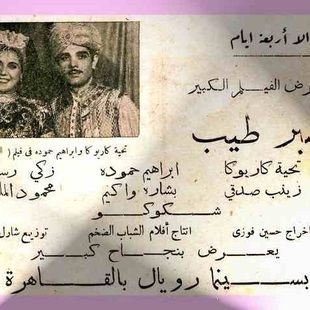 الا أربعة ايام
رض الفيلم الكبير
بر طيب
تحية كاريوكا وابراهيم حموده فى فيلم (
تحية كاريوكا ابراهيم حموده زكي رس
زينب صدقي بشاره واكيم محمود المل
شكوكو
اخراج حسين فوزى انتاج أفلام الشباب الضخم توزيع شارل
يعرض بنجاح كبير
بسينما رويال بالقاهرة